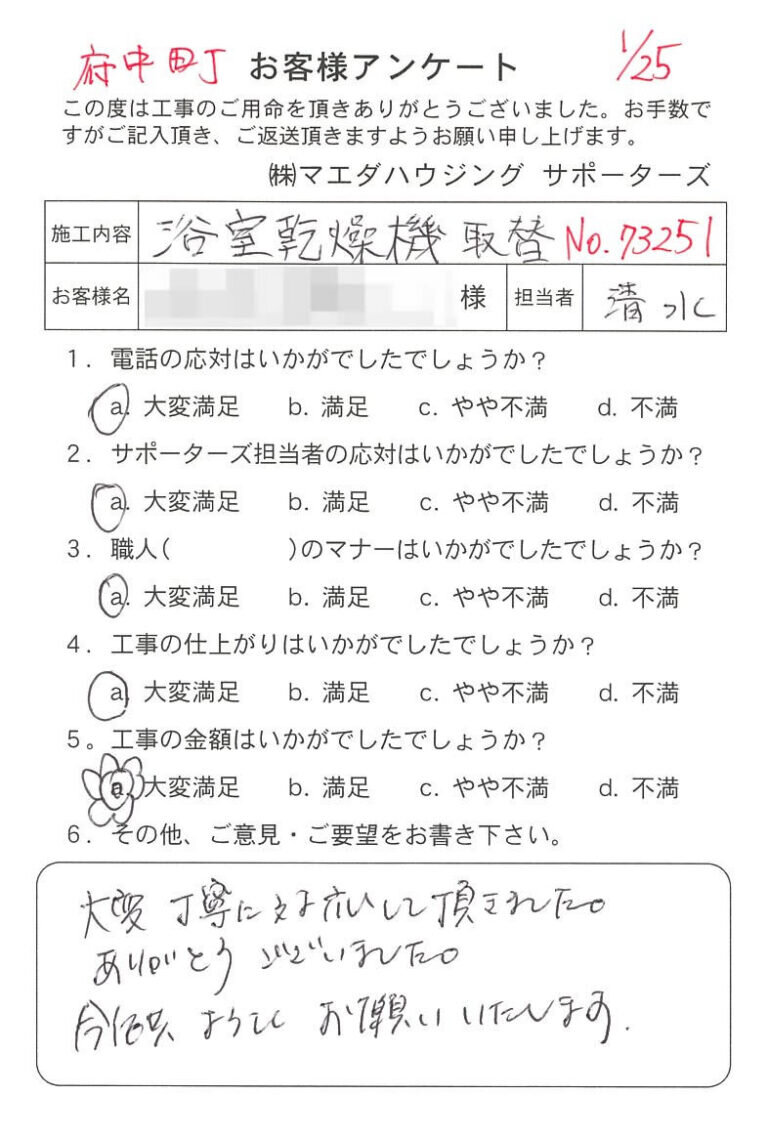 府中町 お客様アンケート 1/25
この度は工事のご用命を頂きありがとうございました。お手数で
すがご記入頂き、ご返送頂きますようお願い申し上げます。
㈱マエダハウジング サポーターズ
施工内容 浴室乾燥機 取替 No.73251
お客様名 様 担当者 清水
1. 電話の応対はいかがでしたでしょうか？
a. 大変満足 b. 満足 c. やや不満 d. 不満
2. サポーターズ担当者の応対はいかがでしたでしょうか？
a. 大変満足 b. 満足 c. やや不満 d. 不満
3. 職人( )のマナーはいかがでしたでしょうか？
a. 大変満足 b. 満足 c. やや不満 d. 不満
4. 工事の仕上がりはいかがでしたでしょうか？
a. 大変満足 b. 満足 c. やや不満 d. 不満
5。工事の金額はいかがでしたでしょうか？
a. 大変満足 b. 満足 c. やや不満 d. 不満
6. その他、ご意見・ご要望をお書き下さい。
大変 丁寧に対応して頂きました。
ありがとうございました。
今後共 よろしく お願いいたします.